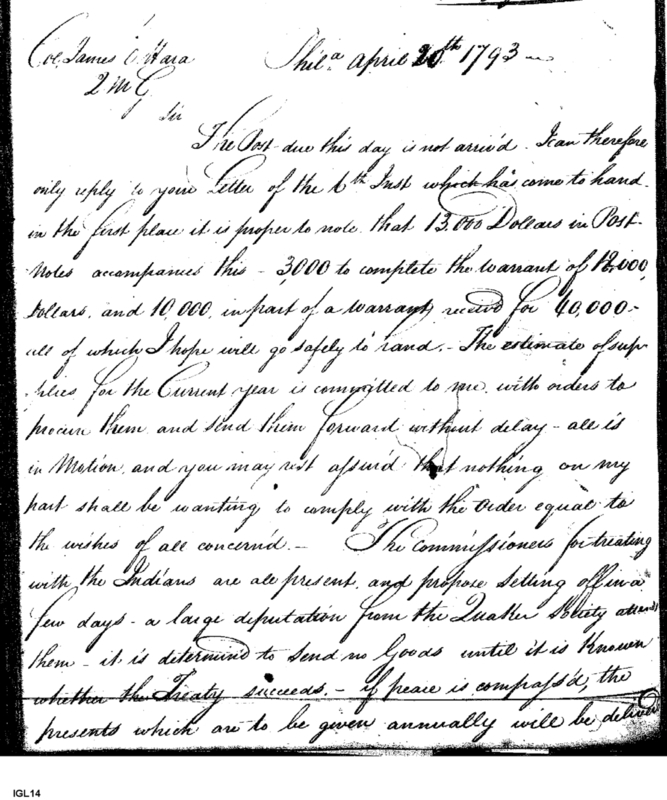 Col. James O'Hara
Phila. April 20th 1793
2 M G
Sir
The Post due this day is not arriv'd. I can therefore
only reply to your Letter of the 6th Inst which has come to hand.
in the first place it is proper to note that 13,000 Dollars in Post-
Notes accompanies this - 3,000 to complete the warrant of 18,000
Dollars, and 10,000 in part of a warrant receivd for 40,000 -
all of which I hope will go safely to hand. - The estimate of sup-
plies for the Current year is committed to me, with orders to
procure them and send them forward without delay - all is
in Motion, and you may rest assur'd that nothing on my
part shall be wanting to comply with the Order equal to
the wishes of all concern'd. - The Commissioners for treating
with the Indians are all present, and propose setting off in a
few days - a large deputation from the Quaker Society attends
them - it is determind to send no Goods until it is known
whether the Treaty succeeds. - if peace is compass'd, the
presents which are to be given annually will be deliver
IGL14